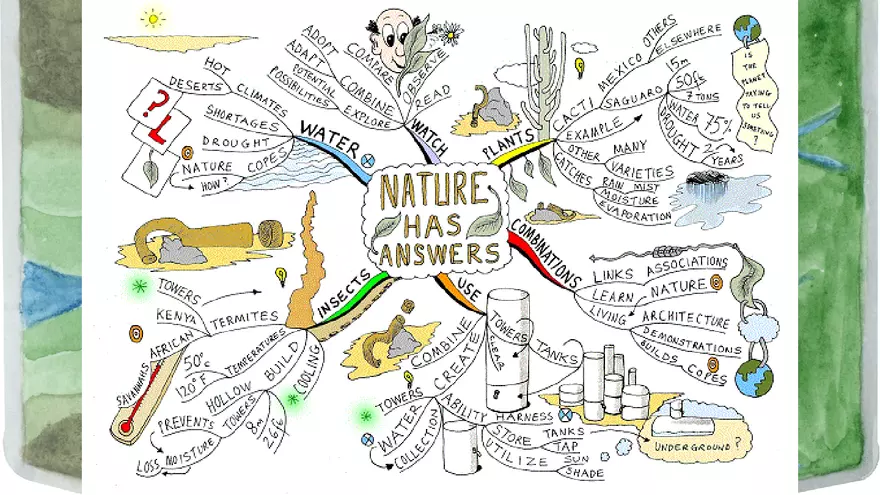 NATURE
HAS
ANSWERS
WATER
HOT
DESERTS
CLIMATES
SHORTAGES
DROUGHT
NATURE COPES
HOW?
?
WATCH
ADOPT
ADAPT
POTENTIAL
POSSIBILITIES
COMPARE
COMBINE
EXPLORE
OBSERVE
READ
PLANTS
CACTI
MEXICO
OTHERS
ELSEWHERE
EXAMPLE
SAGUARO
15m
50ft
7 TONS
WATER 75%
DROUGHT
2 YEARS
OTHER MANY
VARIETIES
CATCHES
RAIN MIST
MOISTURE
EVAPORATION
IS
THE
PLANET
TRYING
TO TELL
US
SOMETHING?
COMBINATIONS
LINKS ASSOCIATIONS
LEARN NATURE
LIVING ARCHITECTURE
DEMONSTRATIONS
BUILDS COPES
USE
COMBINE
CREATE
TOWERS
CLEAR
TANKS
TOWERS
WATER
COLLECTION
ABILITY HARNESS
STORE TANKS
TAP
UTILIZE SUN
SHADE
UNDERGROUND?
INSECTS
TOWERS
KENYA
TERMITES
AFRICAN
SAVANNAHS
TEMPERATURES
50°C
120°F
BUILD
COOLING
HOLLOW
TOWERS
8m
26ft
PREVENTS
MOISTURE
LOSS